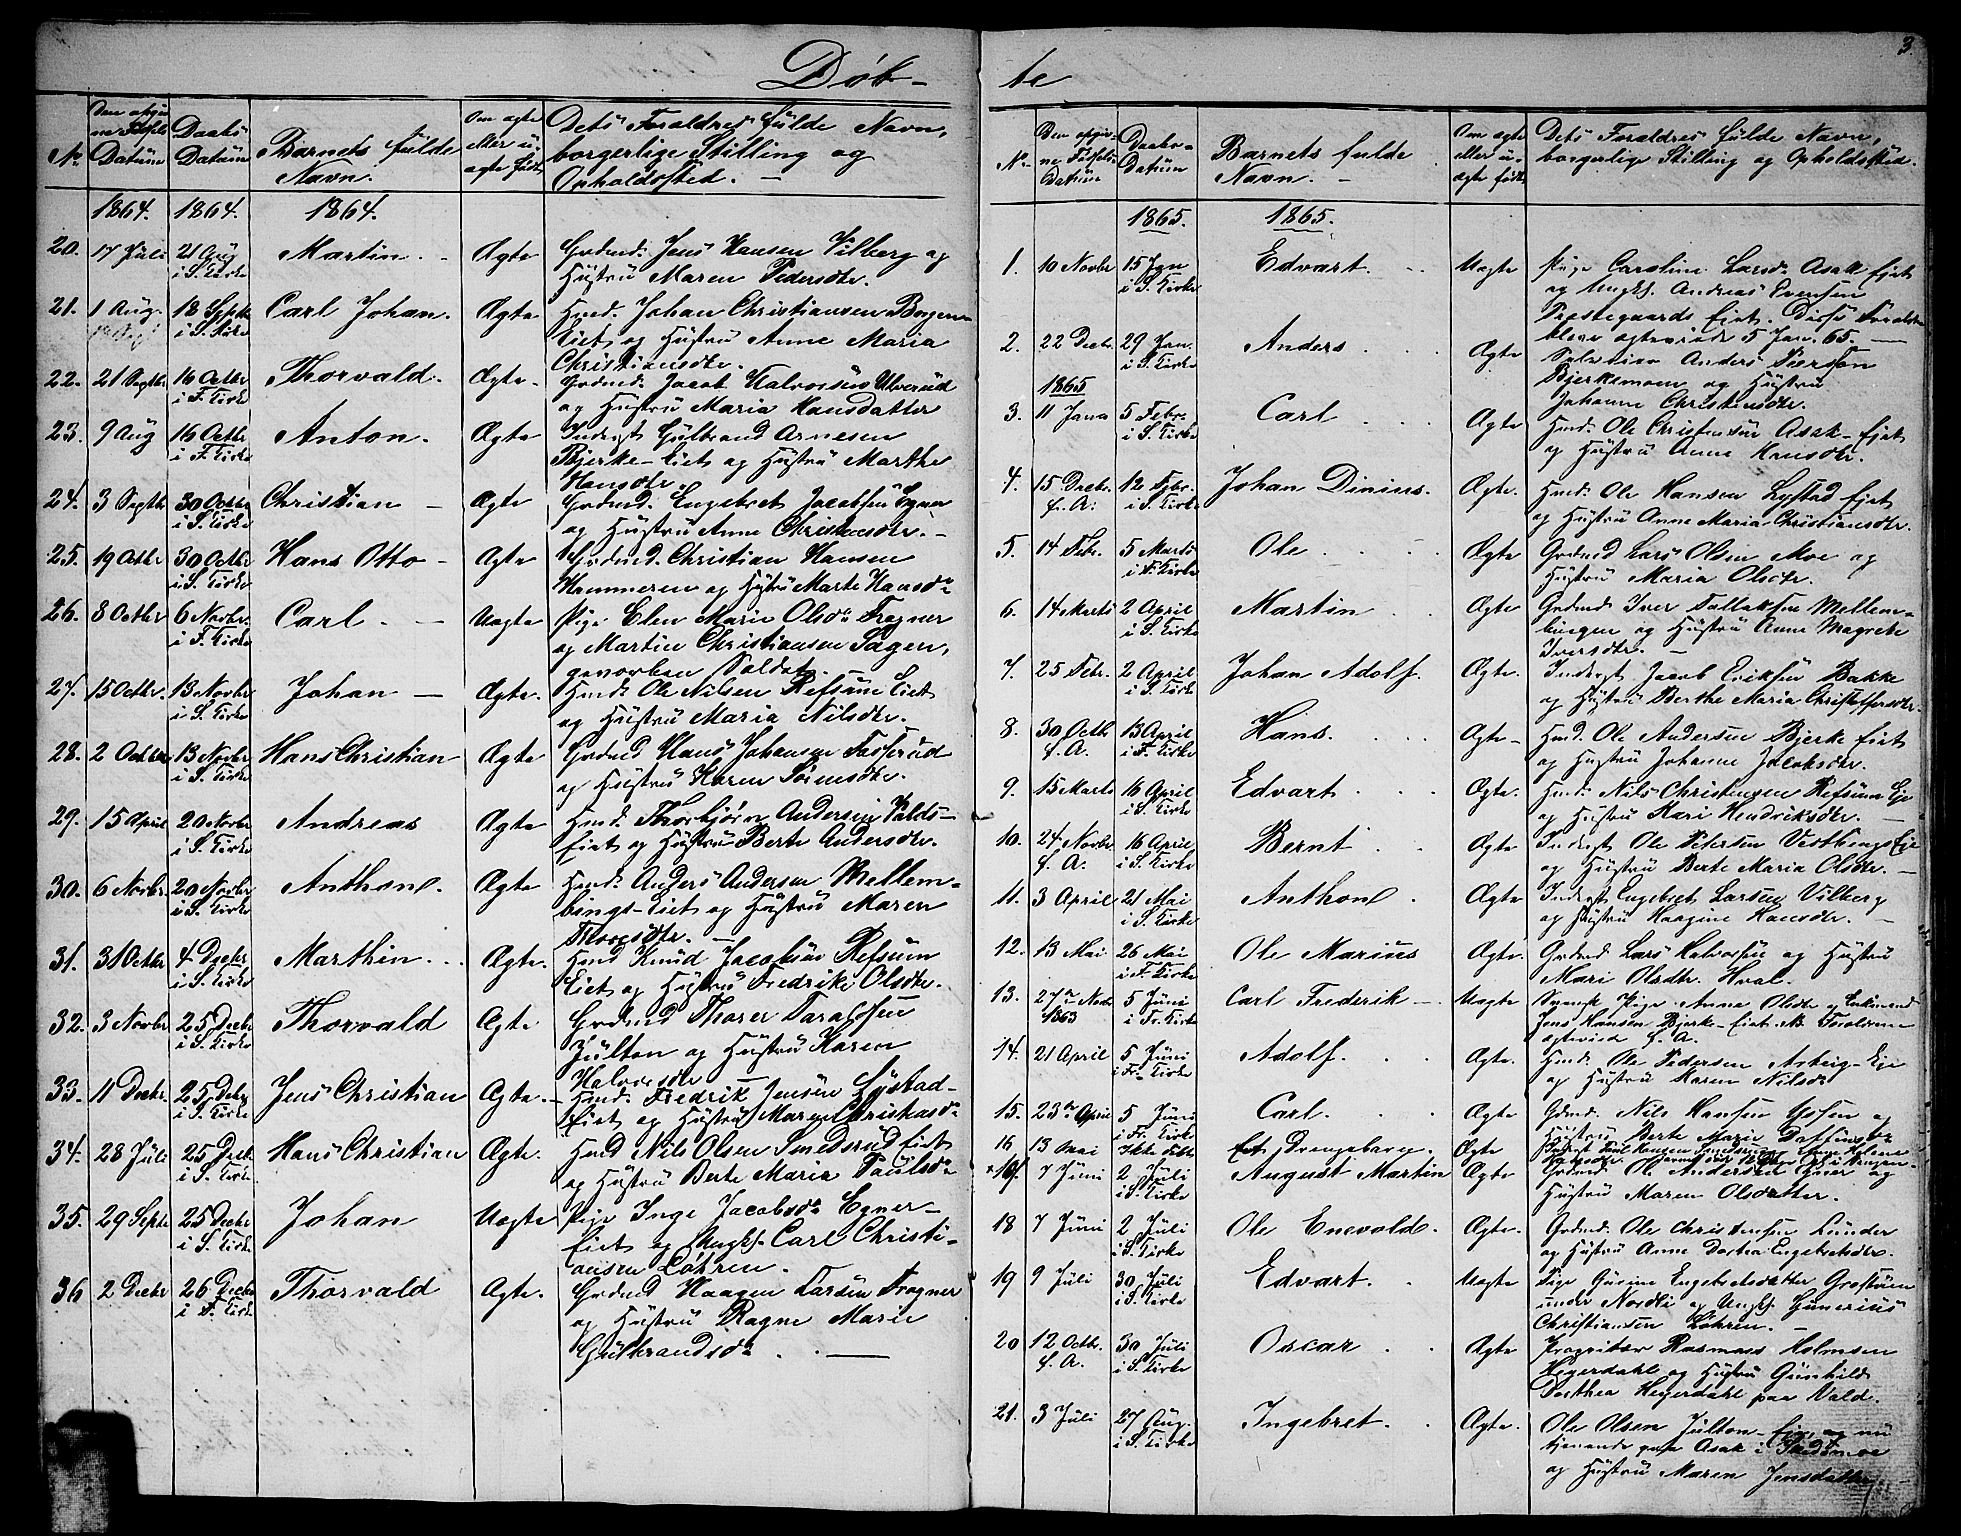 Døb-
No.
Datum
Daabs
Datum
Barnets fulde
Navn.
Om ægte
eller u-
ægte født
Dets Forældres fulde Navn,
borgerlige Stilling og
Opholdssted. –
1864. 1864. 1864.
20. 17 Juli 21 Aug i S. Kirke Martin. – Ægte Grdmd. Jens Hansen Vilberg og
Hustru Maren Pedersdtr.
21. 1 Aug. 18 Septbr i S. Kirke Carl Johan. Ægte Hmd. Johan Christiansen Borgen
Eiet og Hustru Anne Maria
Christiansdtr.
22. 21 Septbr 16 Octbr i F. Kirke Thorvald. Ægte. Grdmd. Jacob Halvorsen Ulverud
og Hustru Maria Hansdatter
23. 9 Aug 16 Octbr i F. Kirke Anton. Ægte Inderst Gulbrand Arnesen
Bjerke-Eiet og Hustru Marthe
Hansdtr.
24. 3 Septbr 30 Octbr i S. Kirke Christian – Ægte Grdmd. Engebret Jacobsen Egner
og Hustru Anne Christensdtr. –
25. 19 Octbr 30 Octbr i S. Kirke Hans Otto – Ægte Grdmd. Christian Hansen
Hammeren og Hustru Marte Hansdr
26. 8 Octbr 6 Novbr. i F. Kirke Carl. – Uægte Pige Elen Marie Olsdr Fragner
og Martin Christiansen Hagen,
gevorben Soldat.
27. 15 Octbr. 13 Novbr i S. Kirke Johan – Ægte. Hmd. Ole Nilsen Refsum Eiet
og Hustru Maria Nilsdtr.
28. 2 Octbr 13 Novbr i S. Kirke Hans Christian Ægte Grdmd Hans Johansen Fosserud
og Hustru Karen Sørensdtr.
29. 15 April 20 Novbr i S. Kirke Andreas Ægte Hmd. Thorbjørn Andersen Valds-
Eiet og Hustru Berte Andersdtr.
30. 6 Novbr 20 Novbr i S. Kirke Anthon. Ægte Hmd. Anders Andersen Mellem-
bings-Eiet og Hustru Maren
Thoresdtr. –
31. 31 Octbr 4 Decbr i S. Kirke Marthin. . . Ægte. Hmd Knud Jacobsen Refsum
Eiet og Hustru Fredrike Olsdtr.
32. 3 Novbr 25 Decbr i S. Kirke Thorvald Ægte Grdmd Thorer Taraldsen
Julton og Hustru Karen
Halvorsdtr
33. 11 Decbr. 25 Decbr i S. Kirke Jens Christian Ægte. Hmd. Fredrik Jensen Lystad-
Eiet og Hustru Maren Christiansdr
34. 28 Juli 25 Decbr i S. Kirke. Hans Christian Ægte. Hmd Nils Olsen Smedsrud Eiet
og Hustru Berte Maria Paulsdr
35. 29 Septbr 25 Decbr i S. Kirke Johan Uægte Pige Inge Jacobsdr Egner-
Eiet og Ungk. Carl Christi-
ansen Løhren.
36 2 Decbr 26 Decbr i F. Kirke Thorvald Ægte. Grdmd Haagen Larsen Fragner
og Hustru Ragne Marie
Gulbrandsdr . –
te
3.
No.
Datum
Daabs-
Datum
Barnets fulde
Navn. –
Om ægte
eller u-
ægte født
Dets Forældres fulde Navn,
borgerlige Stilling og Opholdssted.
1865. 1865.
1. 10 Novbr 15 Jan i S. Kirke Edvart. . . Uægte Pige Caroline Larsdr Asak Eiet
og Ungk. Andreas Evensen
Præstegaards Eiet. Disse Forældre
bleve ægteviede 5 Jan. 65. –
2. 22 Decbr. 29 Jan. i S. Kirke Anders . . . Ægte Anders
Bjerkemoen og Hustru
Johanne Christensdtr.
1865
3. 11 Janr 5 Febr. i S. Kirke Carl . . . Ægte Hmd. Ole Christensen Asak-Eiet
og Hustru Anne Hansdtr.
4. 15 Decbr. f. A. 12 Febr. i S. Kirke Johan Dinius. Ægte. Hmd. Ole Hansen Lystad Eiet
og Hustru Anne Maria Christiansdtr.
5. 14 Febr. 5 Marts i F. Kirke Ole . . . Ægte Grdmd Lars Olsen Moe og
Hustru Maria Olsdtr.
6. 14 Marts 2 April i S. Kirke Martin . . Ægte Grdmd. Iver Tollefsen Mellem-
bingen og Hustru Anne Magrete
Iversdtr. –
7. 25 Febr. 2 April i S. Kirke Johan Adolf. Ægte. Inderst Jacob Eriksen Bakke
og Hustru Berthe Maria Christoffersdtr.
8. 30 Octb. f. A. 13 April i F. Kirke Hans. . . . Ægte- Hmd. Ole Andersen Bjerke Eiet
og Hustru Johanne Jacobsdtr.
9. 15 Marts 16 April i S. Kirke Edvart . . . Ægte. Hmd. Nils Christensen Refsum Eje
og Hustru Kari Hendriksdtr. –
10. 24 Novbr. f. A. 16 April i S. Kirke Bernt . . . Ægte Inderst Ole Petersen Vestbyengs Eje
og Hustru Berte Maria Olsdtr. –
11. 3 April 21 Mai i S. Kirke Anthon . Ægte Inderst Engebret Larsen Vilberg
og Hustru Haagine Hansdtr. –
12. 13 Mai 26 Mai i F. Kirke Ole Marius Ægte. Grdmd. Lars Halvorsen og Hustru
Mari Olsdtr. Hval.
13. 27de Novbr 1863 5 Juni i Fr. Kirke Carl Frederik – Uægte Svensk Pige Anne Olsdtr og Enkemand
Jens Hansen Bjerke-Eiet. NB Forældrene
ægteviede f. A.
14. 21 April 5 Juni i Fr. Kirke Adolf. . . Ægte. Hmd. Ole Pedersen Asbeig-Eje
og Hustru Karen Nilsdr
15. 23de April 5 Juni i Fr. Kirke Carl. . . Ægte Gdmd. Nils Hansen og
Hustru Berte Marie
16 13 Mai Ikke døbt Et Drengebarn. Ægte
17. 7 Juni 2 Juli i S. Kirke August Martin Ægte Grdmd. Ole Andersen Egner og
Hustru Maren Olsdatter.
18 7 Juni 2 Juli i S. Kirke Ole Enevold. Ægte. Grdmd. Ole Christensen Lunder
og Hustru Anne Dortea Engebretsdtr.
19 9 Juli 30 Juli i S. Kirke Edvart. . Uægte Pige Gurine Engebretsdatter Grøstuen
under Nordli og Ungk. Gunerius
Christiansen Løhren. –
20 12 Octbr. f. A. 30 Juli i S. Kirke Oscar . . Ægte Propritær Rasmus Holmsen
Hegerdahl og Hustru Gunhild
Dorthea Hegerdahl paa Vald.
21. 3 Juli 27 Aug. i S. Kirke Ingebret. . Ægte. Ole Olsen Julton-Eje og nu
tjenende paa Asak i Skedsmoe
og Hustru Maren Jensdatter.